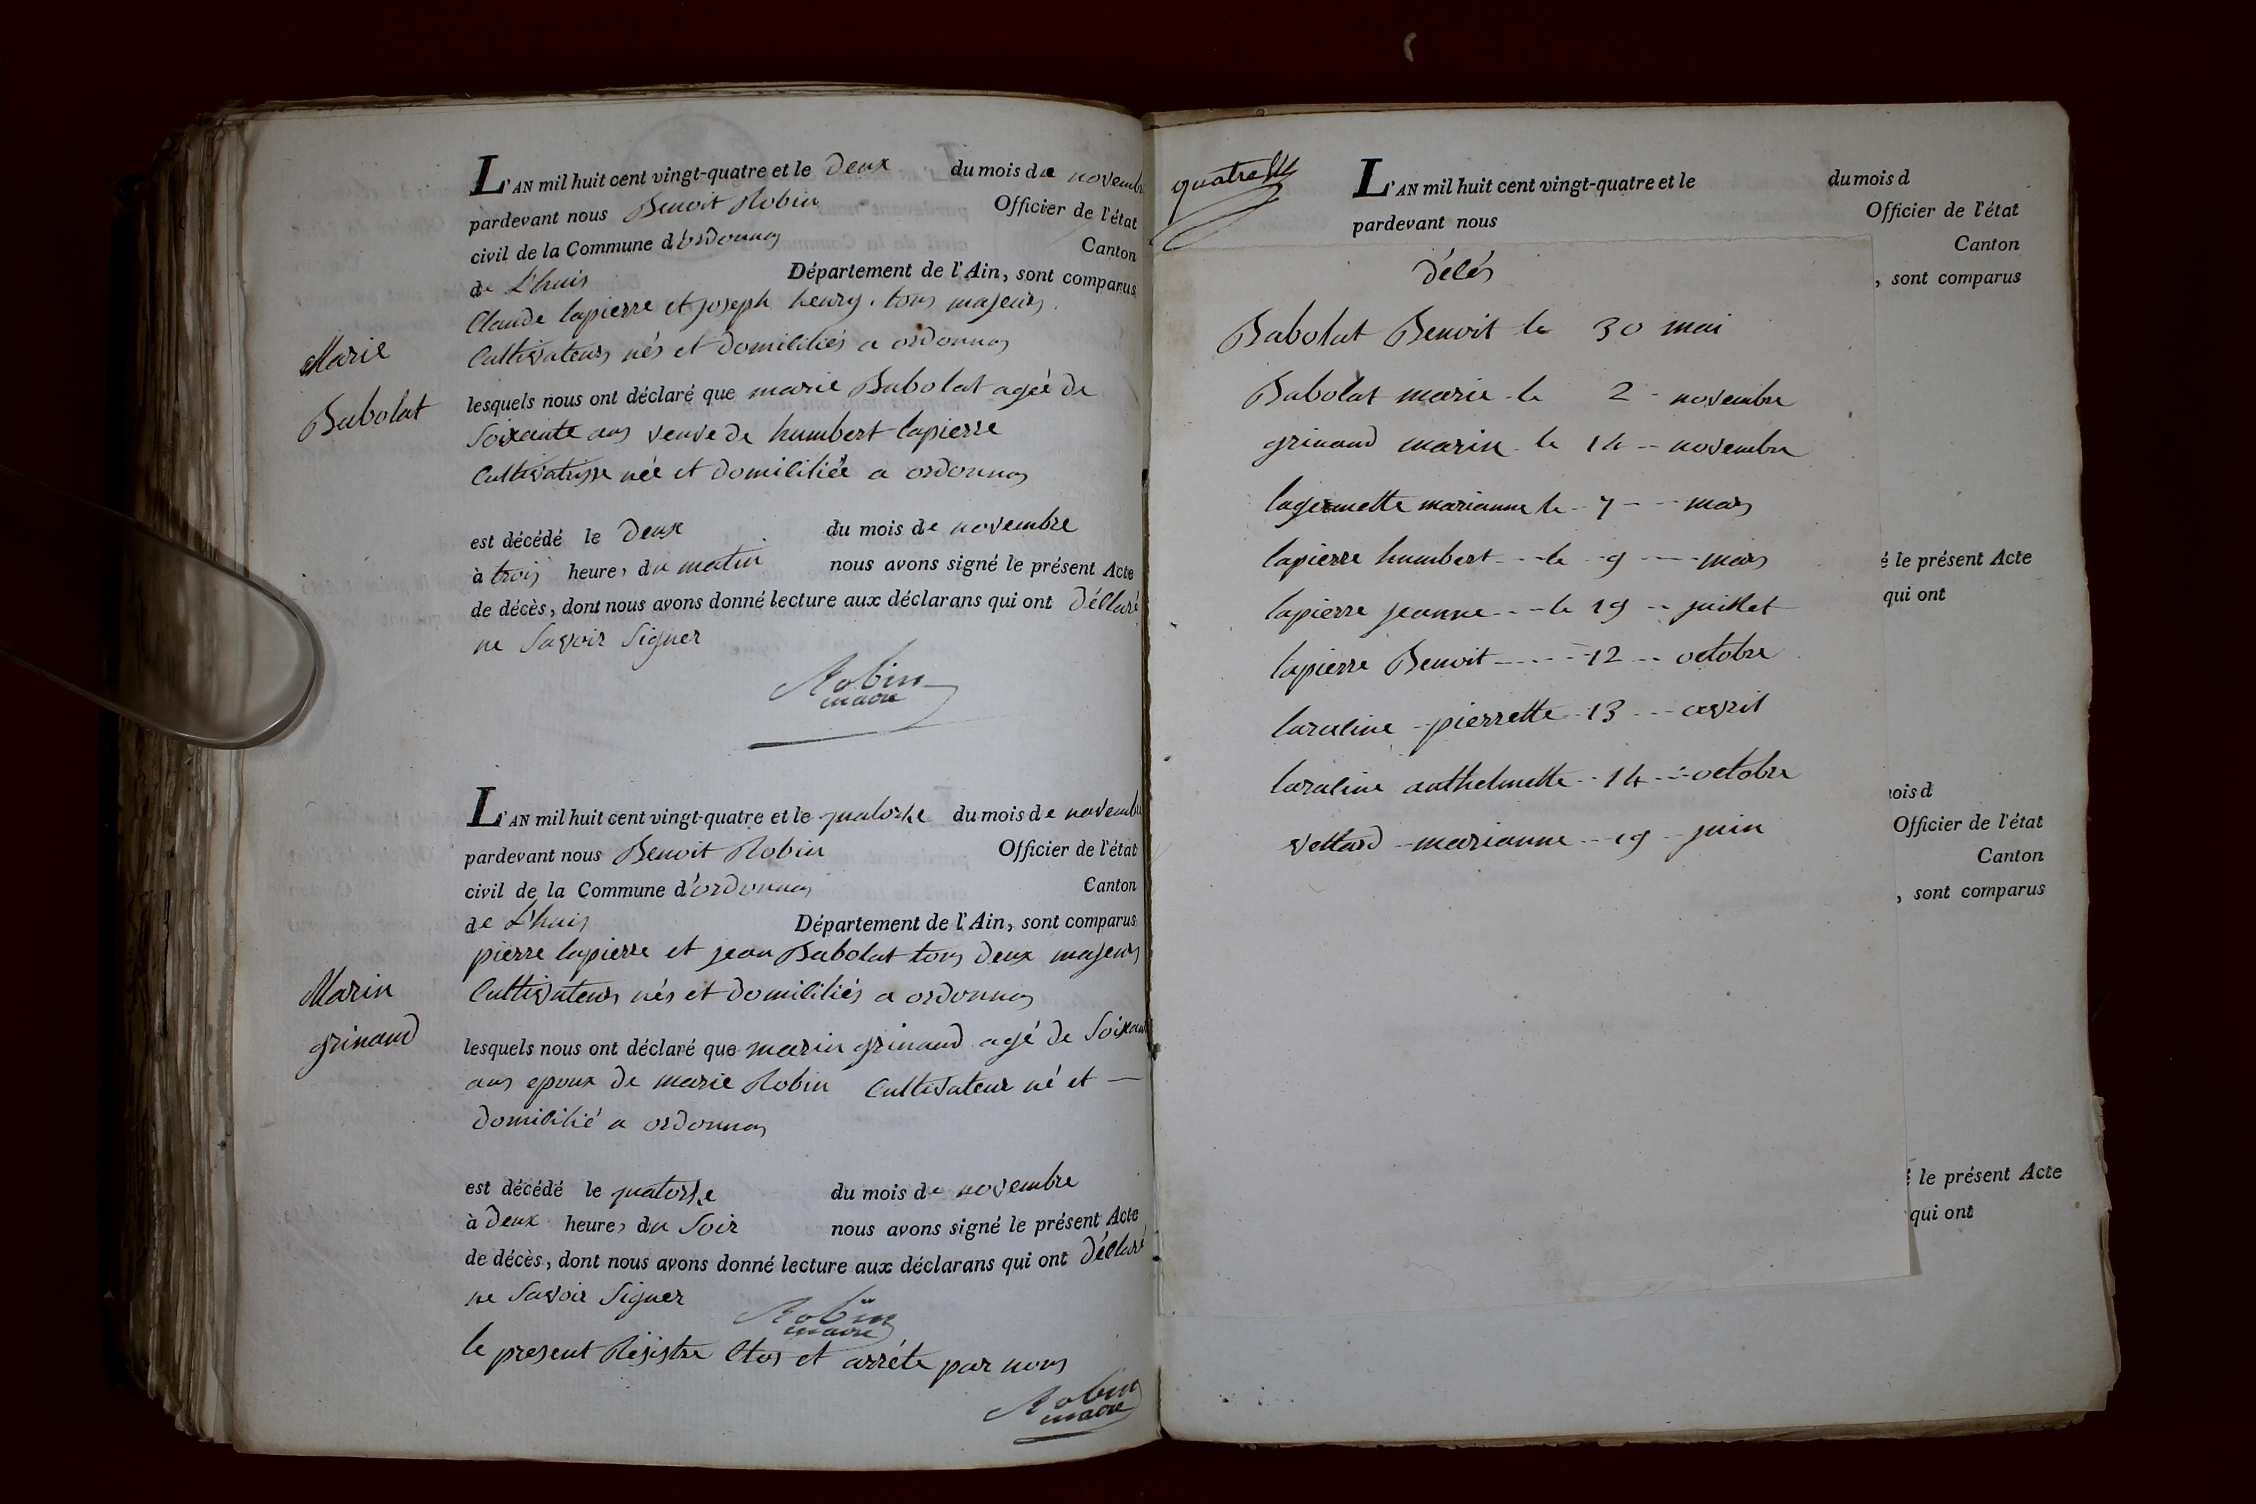 L'AN mil huit cent vingt-quatre et le deux du mois de novembre
pardevant nous Benoit Robin Officier de l'état
civil de la Commune d'ordonnas Canton
de L'huis Département de l'Ain, sont comparus
Claude lapierre et joseph henry. tous majeurs.
Cultivateurs nés et domiciliés a ordonnas
Marie
Babolat
lesquels nous ont déclaré que marie Babolat agée de
soixante ans veuve de humbert lapierre
Cultivatrisse née et domiciliée a ordonnas
est décédé le deux du mois de novembre
à trois heures du matin nous avons signé le présent Acte
de décès, dont nous avons donné lecture aux déclarans qui ont déclaré
ne savoir signer
Robin
maire
L'AN mil huit cent vingt-quatre et le quatorze du mois de novembre
pardevant nous Benoit Robin Officier de l'état
civil de la Commune d'ordonnas Canton
de L'huis Département de l'Ain, sont comparus
pierre lapierre et jean Babolat tous deux majeurs
Cultivateurs nés et domiciliés a ordonnas
Marin
grinand
lesquels nous ont déclaré que marin grinand agé de soixante
ans epoux de marie Robin Cultivateur né et —
domicilié a ordonnas
est décédé le quatorze du mois de novembre
à deux heures du soir nous avons signé le présent Acte
de décès, dont nous avons donné lecture aux déclarans qui ont déclaré
ne savoir signer
Robin
maire
le present Régistre Clos et arréte par nous
Robin
maire
quatre
L'AN mil huit cent vingt-quatre et le du mois d
pardevant nous Officier de l'état
Canton
, sont comparus
décés
Babolat Benoit le 30 mai
Babolat marie le 2 - novembre
grinand marin le 14 -- novembre
lagernette marianne le - 7 --- mars
lapierre humbert --- le - 9 --- mars
lapierre jeanne --- le 19 -- juillet
lapierre Benoit ----- 12 -- octobre
laraline - pierrette - 13 --- avril
laraline anthelmette -- 14 --- octobre
vettard - marianne -- 19 - juin
é le présent Acte
qui ont
ois d
Officier de l'état
Canton
, sont comparus
é le présent Acte
qui ont